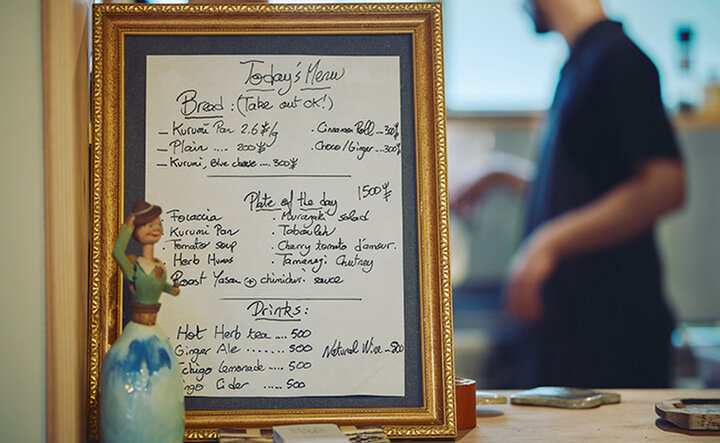 Today's Menu
Bread : (Take out OK!)
– Kurumi Pan 2.6¥/g
– Plain .... 200¥
– Kurumi, Blue cheese .... 300¥
. Cinnamon Roll – 300¥
. Choco/Ginger .. 300¥
Plate of the day 1500¥
Focaccia
Kurumi Pan
Tomato soup
Herb Humus
Roast Yasai + chimichuri sauce
. Murasaki salad
. Tabouleh
. Cherry tomato d'amour.
. Tamanegi Chutney
Drinks:
Hot Herb tea .... 500
Ginger Ale ....... 500
Lemonade .... 500
Cider .... 500
Natural Wine .. 800